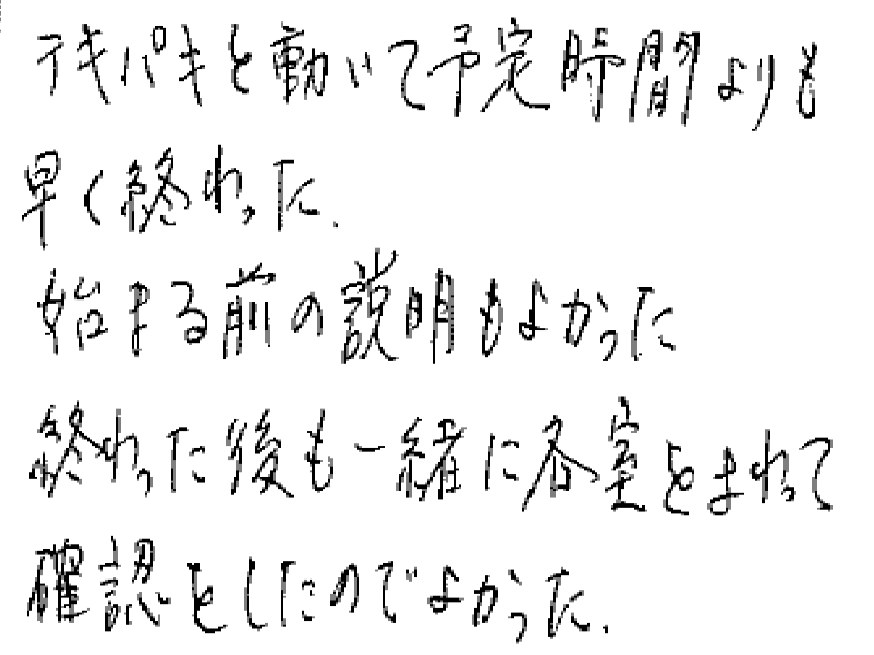 テキパキと動いて予定時間よりも
早く終わった.
始まる前の説明もよかった
終わった後も一緒に各室をまわって
確認をしたのでよかった.